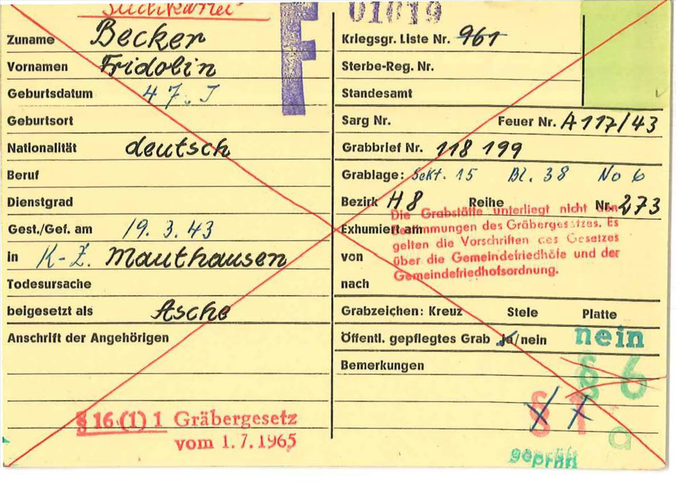 Suchkartei
F
01619
Zuname Becker
Vornamen Fridolin
Geburtsdatum 47. J
Geburtsort
Nationalität deutsch
Beruf
Dienstgrad
Gest./Gef. am 19. 3. 43
in K-Z. Mauthausen
Todesursache
beigesetzt als Asche
Anschrift der Angehörigen
§ 16 (1) 1 Gräbergesetz
vom 1. 7. 1965
Kriegsgr. Liste Nr. 961
Sterbe-Reg. Nr.
Standesamt
Sarg Nr. Feuer Nr. A 117/43
Grabbrief Nr. 118 199
Grablage: Sekt. 15 Bl. 38 No 6
Bezirk H 8 Reihe Nr. 273
Die Grabstätte unterliegt nicht den
Exhumiert am
Bestimmungen des Gräbergesetzes. Es
gelten die Vorschriften des Gesetzes
von
über die Gemeindefriedhöfe und der
Gemeindefriedhofsordnung.
nach
Grabzeichen: Kreuz Stele Platte
Öffentl. gepflegtes Grab ja/nein nein
Bemerkungen
§ 6
§ 1
a
geprüft